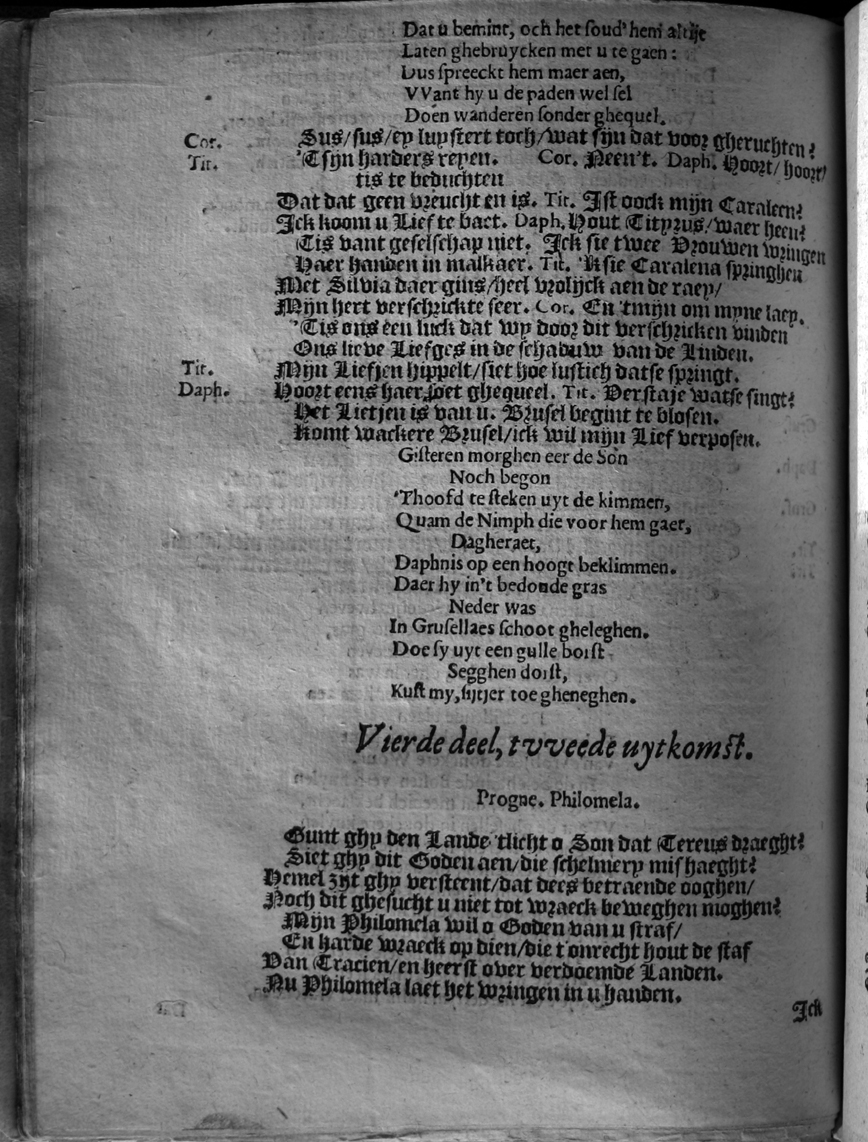 Dat u bemint, och het soud' hem altijt
Laten ghebruycken met u te gaen:
Dus spreeckt hem maer aen,
VVant hy u de paden wel sel
Doen wanderen sonder ghequel.
Cor. Sus/sus/ey luystert toch/wat sijn dat voor gheruchten?
Tit. 'Tsijn harders reyen. Cor. Neen't. Daph. Hoort/hoort/
tis te beduchten
Dat dat geen vreucht en is. Tit. Ist oock mijn Caraleen?
Ick koom u Lief te baet. Daph. Hout Tityrus/waer heen?
Tis vant geselschap niet. Ick sie twee Vrouwen wringen
Haer handen in malkaer. Tit. 'Ksie Caralena springhen
Met Silvia daer gins/heel vrolijck aen de raey/
Mijn hert verschrickte seer. Cor. En 'tmijn om myne laey.
'Tis ons een luck dat wy door dit verschricken vinden
Ons lieve Liefges in de schaduw van de Linden.
Tit. Mijn Liefjen hippelt/siet hoe lustich datse springt.
Daph. Hoort eens haer soet ghequeel. Tit. Verstaje watse singt?
Het Lietjen is van u. Brusel begint te blosen.
Komt wackere Brusel/ick wil mijn Lief verposen.
Gisteren morghen eer de Son
Noch begon
'Thoofd te steken uyt de kimmen,
Quam de Nimph die voor hem gaet,
Dagheraet,
Daphnis op een hoogt beklimmen.
Daer hy in't bedoude gras
Neder was
In Grusellaes schoot gheleghen.
Doe sy uyt een gulle borst
Segghen dorst,
Kust my, sijtjer toe gheneghen.
Vierde deel, tvveede uytkomst.
Progne. Philomela.
Gunt ghy den Lande 'tlicht o Son dat Tereus draeght?
Siet ghy dit Goden aen/die schelmery mishaeght?
Hemel zijt ghy versteent/dat dees betraende ooghen/
Noch dit ghesucht u niet tot wraeck beweghen moghen?
Mijn Philomela wil o Goden van u straf/
En harde wraeck op dien/die t'onrecht hout de staf
Van Tracien/en heerst over verdoemde Landen.
Nu Philomela laet het wringen in u handen.
Ick